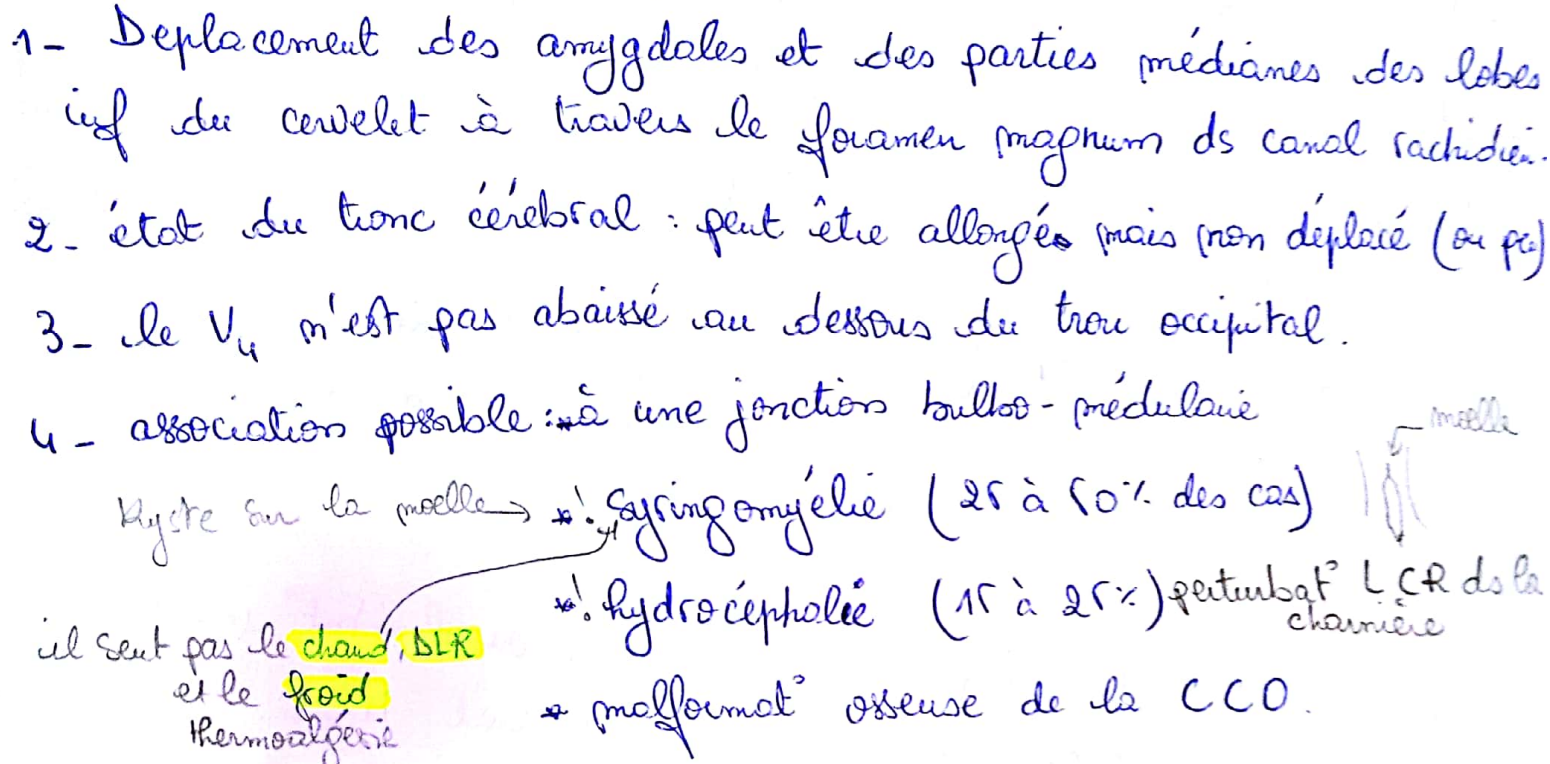 1- Deplacement des amygdales et des parties médianes des lobes
inf du cervelet à travers le foramen magnum ds canal rachidien.
2- état du tronc cérébral : peut être allongé mais non déplacé (ou peu)
3- le V4 n'est pas abaissé au dessous du trou occipital.
4- association possible : à une jonction bulbo-médulaire
moelle
Kyste sur la moelle → *! Syringomyélie (25 à 50% des cas)
*! hydrocéphalie (15 à 25%) perturbat° LCR ds la
charnière
il sent pas le chaud, DLR
et le froid
thermoalgésie
* malformat° osseuse de la CCO.